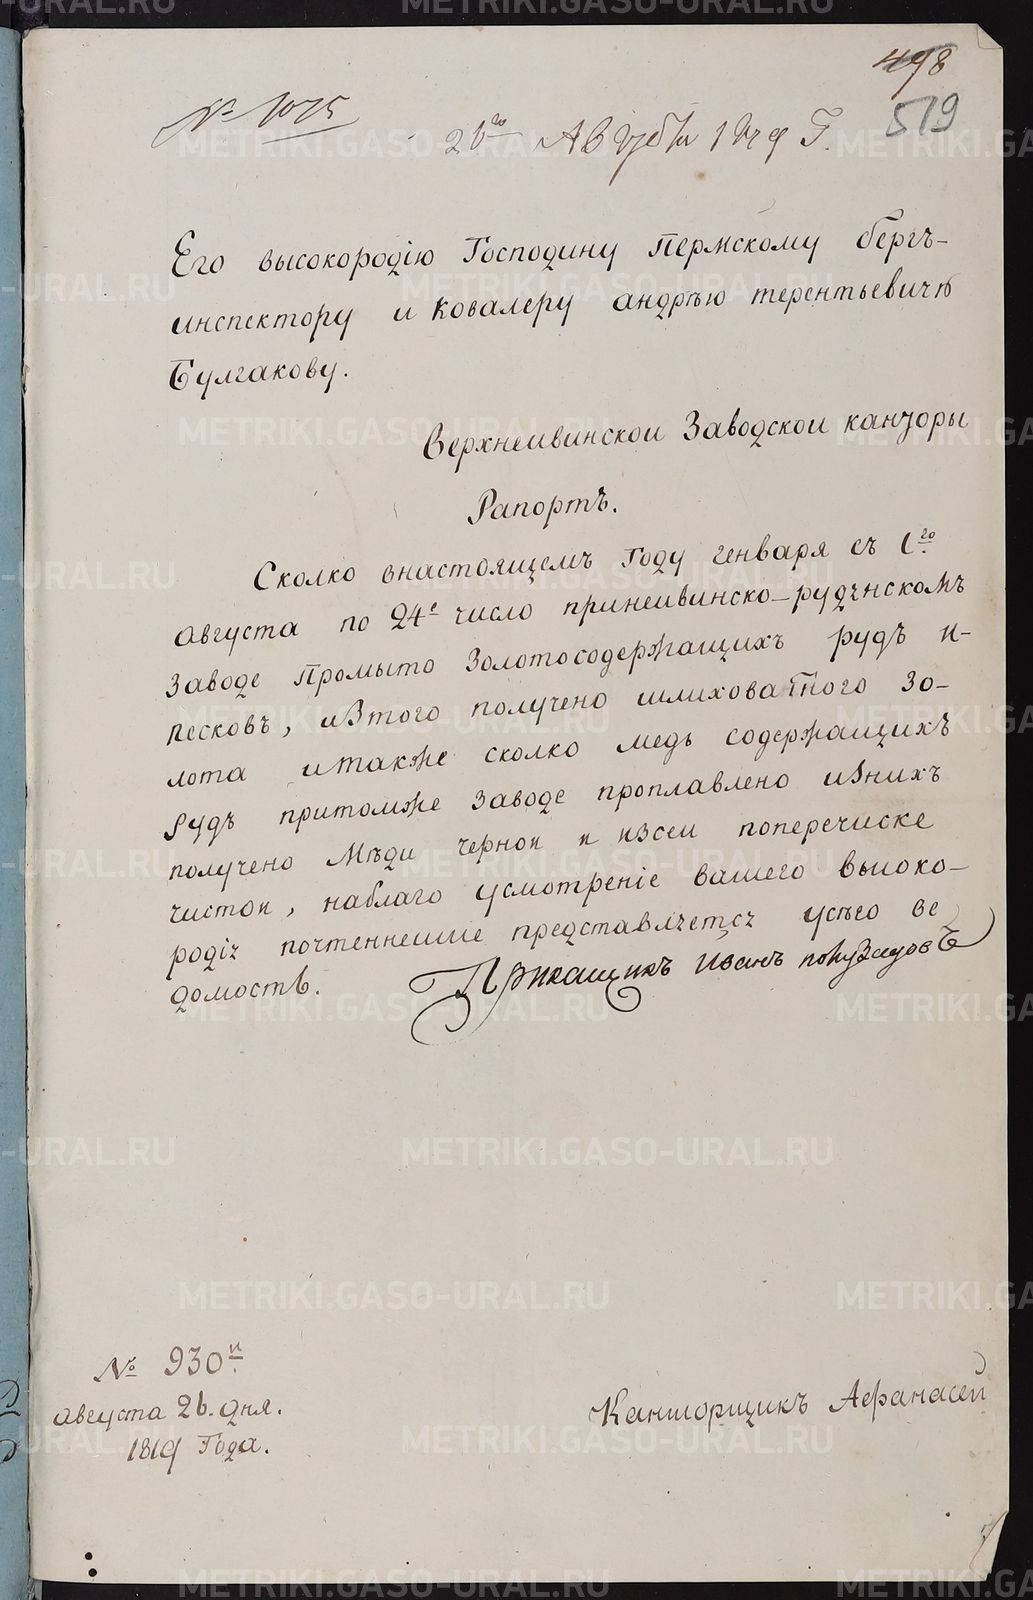 498
519
№ 1075
26го Августа 1819 Г.
Его высокородію Господину Пермскому бергъ-
инспектору и Ковалеру андрѣю терентьевичѣ
Булгакову.
Верхнеивинской Заводской канторы
Рапортъ.
Сколко внастоящемъ Году генваря съ 1го
августа по 24е число принеивинско-рудянскомъ
заводе промыто золотосодержащихъ рудъ и-
песковъ, изтого получено шлиховатного зо-
лота итакже сколко медь содержащихъ
рудъ притомже заводе проплавлено изнихъ
получено мѣди черной и изсей поперечиске
чистой, наблаго усмотреніе вашего высоко-
родія почтеннейше представляется усѣго ве
домость.
Прикащикъ Иванъ
№ 930й
августа 26. дня.
1819 Года.
Канторщикъ Афанасей
METRIKI.GASO-URAL.RU